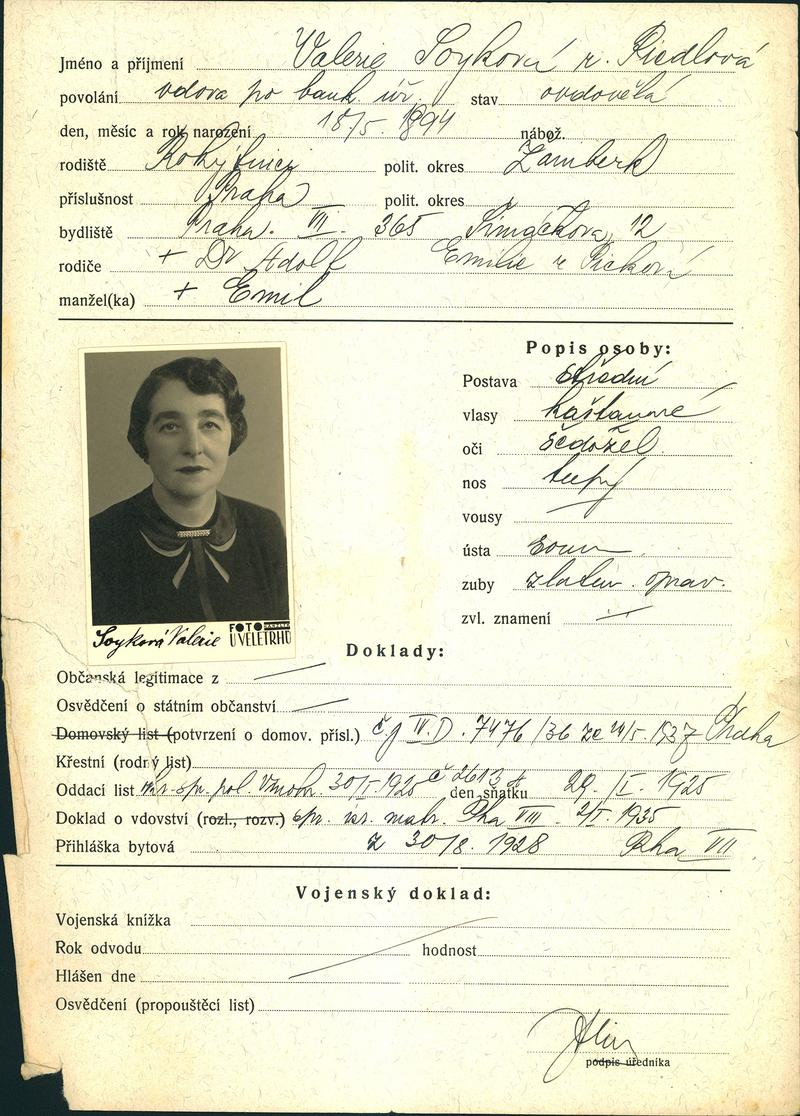 Jméno a příjmení Valerie Soyková r. Riedlová
povolání vdova po bank. úř. stav ovdovělá
den, měsíc a rok narození 18/5. 1894 nábož.
rodiště Rokytnici polit. okres Žamberk
příslušnost Praha polit. okres
bydliště Praha. VII. 365 Šimáčkova 12
rodiče + Dr Adolf Emilie r Picková
manžel(ka) + Emil
Popis osoby:
Postava střední
vlasy kaštanové
oči šedožel.
nos tupý
vousy
ústa soum
zuby zlatem oprav.
zvl. znamení
Soyková Valerie FOTO U VELETRHŮ
Doklady:
Občanská legitimace z
Osvědčení o státním občanství
Domovský list (potvrzení o domov. přísl.) č.j IV.D. 7476/36 ze /5. 1937 Praha
Křestní (rodný list)
Oddací list 30/I. 1925 č 2613 den sňatku 29. /I. 1925
Doklad o vdovství (rozl., rozv.) isr. matr. Pha VII 2/I. 1935
Přihláška bytová z 30/8. 1928 Praha VII
Vojenský doklad:
Vojenská knížka
Rok odvodu hodnost
Hlášen dne
Osvědčení (propouštěcí list)
podpis úředníka